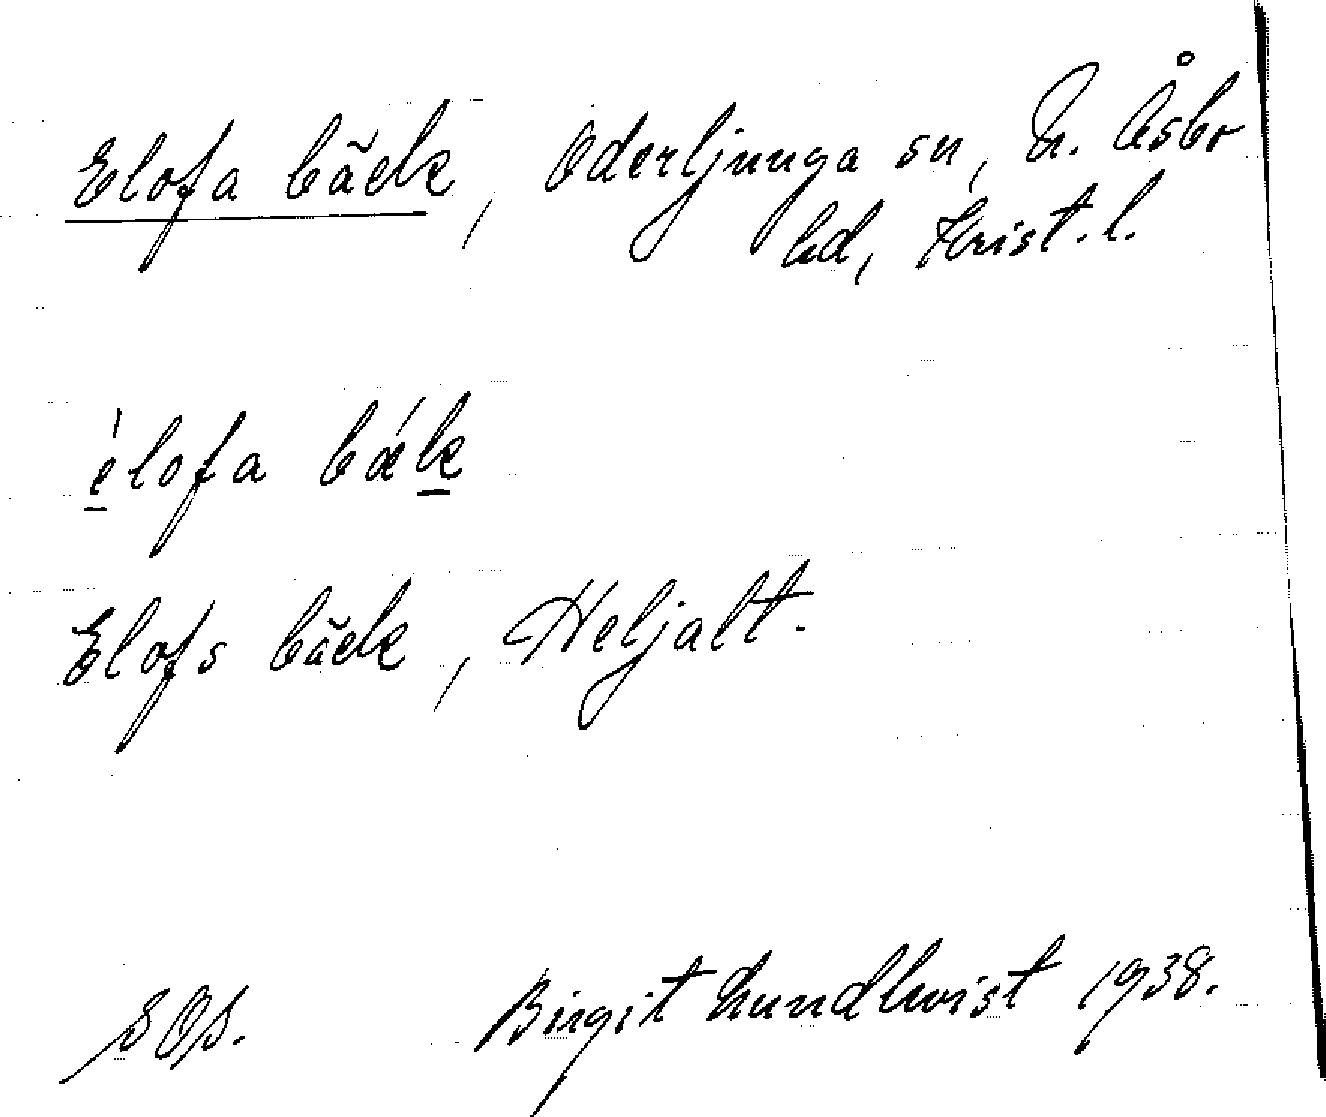 Elofa bäck, Oderljunga sn, N. Åsbo
hd, Krist. l.
èlofa bǽk
Elofs bäck, Heljalt.
SOS. Birgit Lundkvist 1938.